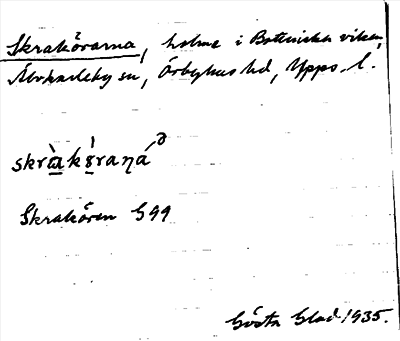 Skrakörarna, holme i Bottniska viken,
Älvkarleby sn, Örbyhus hd, Upps. l.
skràkö́raṇá ə
Skrakören G99
Gösta Glad 1935.